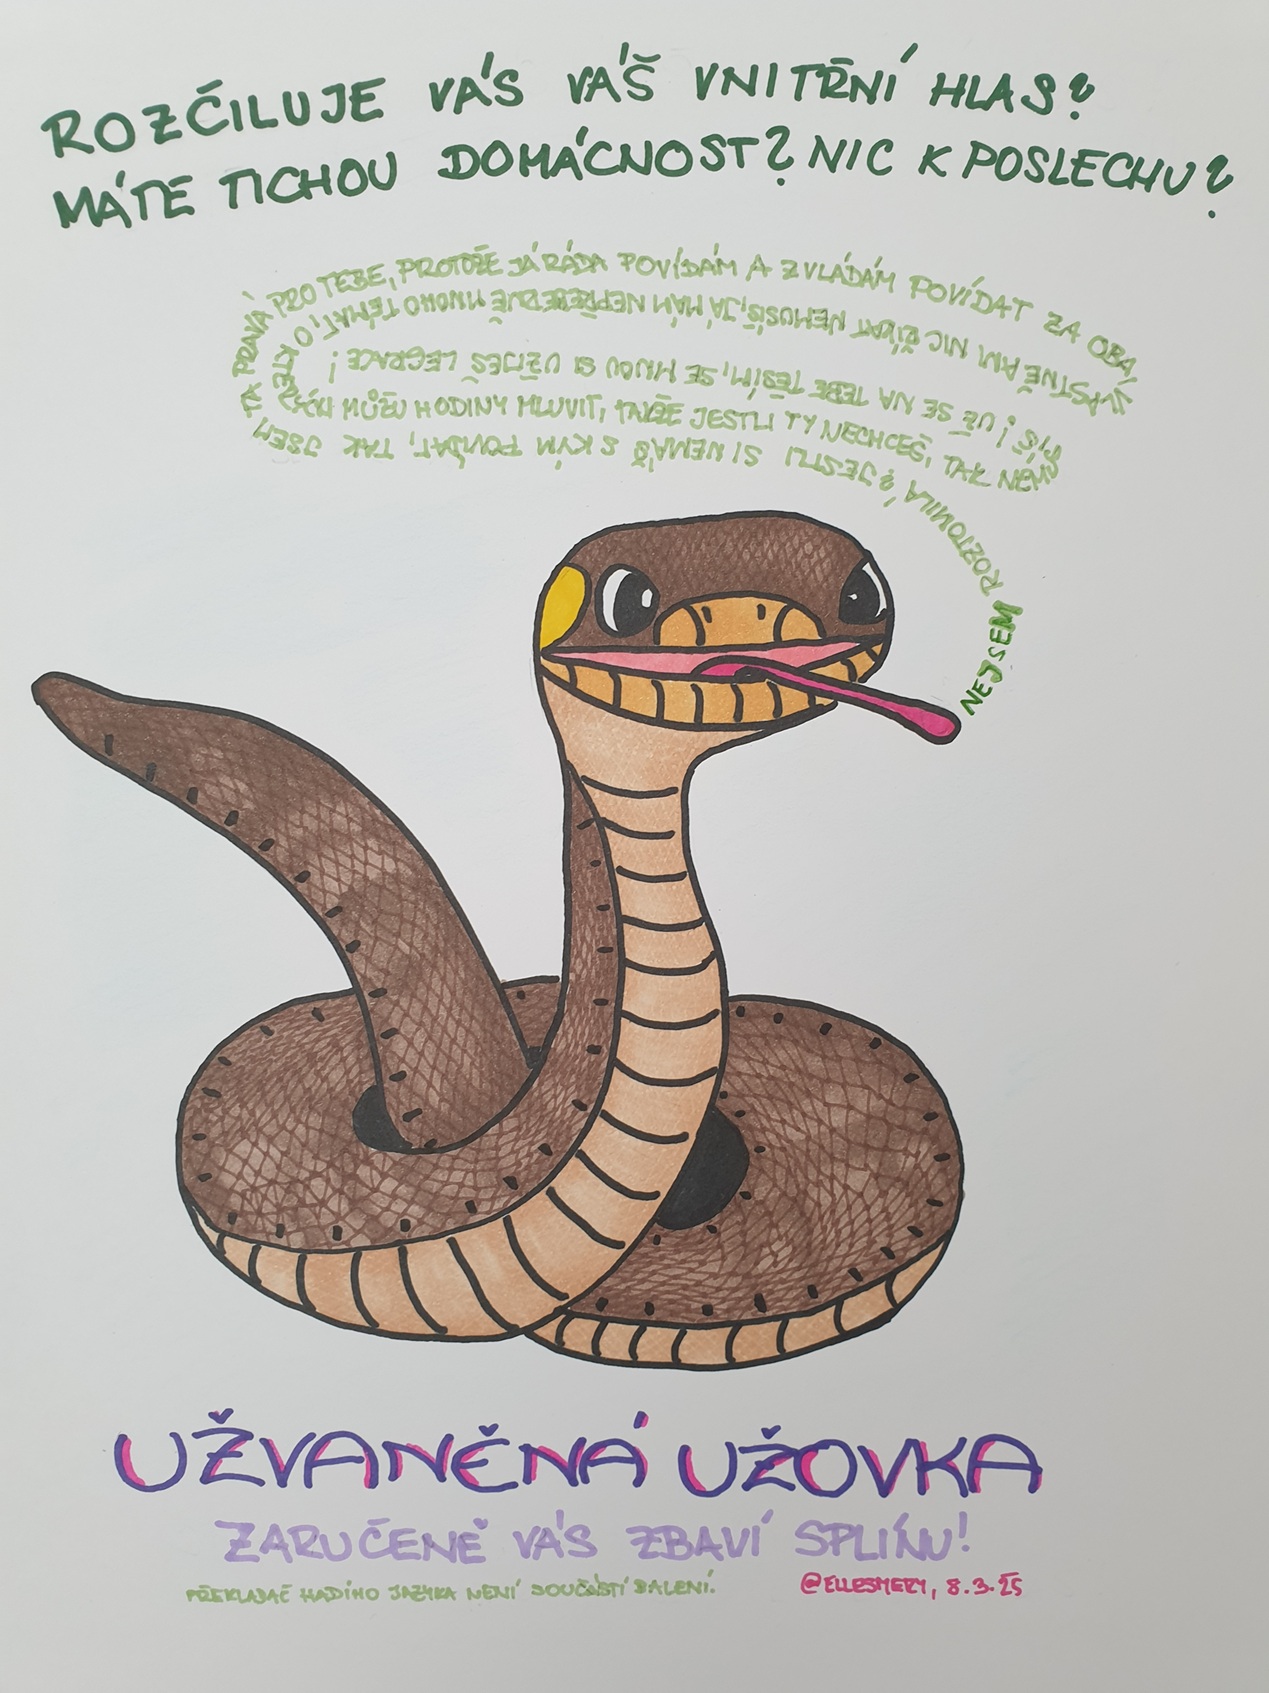 ROZČILUJE VÁS VÁŠ VNITŘNÍ HLAS?
MÁTE TICHOU DOMÁCNOST? NIC K POSLECHU?
NEJSEM ROZTOMILÁ? JESTLI SI NEMÁŠ S KÝM POVÍDAT, TAK JSEM
TA PRAVÁ PRO TEBE, PROTOŽE JÁ RÁDA POVÍDÁM A ZVLÁDÁM POVÍDAT ZA OBA,
VLASTNĚ ANI NIC ŘÍKAT NEMUSÍŠ, JÁ MÁM NEPŘEBERNĚ MNOHO TÉMAT, O KTERÝCH
MŮŽU HODINY MLUVIT, TAKŽE JESTLI TY NECHCEŠ, TAK NEMUSÍŠ!
UŽ SE NA TEBE TĚŠÍM, SE MNOU SI UŽIJEŠ LEGRACE!
UŽVANĚNÁ UŽOVKA
ZARUČENĚ VÁS ZBAVÍ SPLÍNU!
PŘEKLADAČ HADÍHO JAZYKA NENÍ SOUČÁSTÍ BALENÍ.
@ELLESMERY, 8.3.25